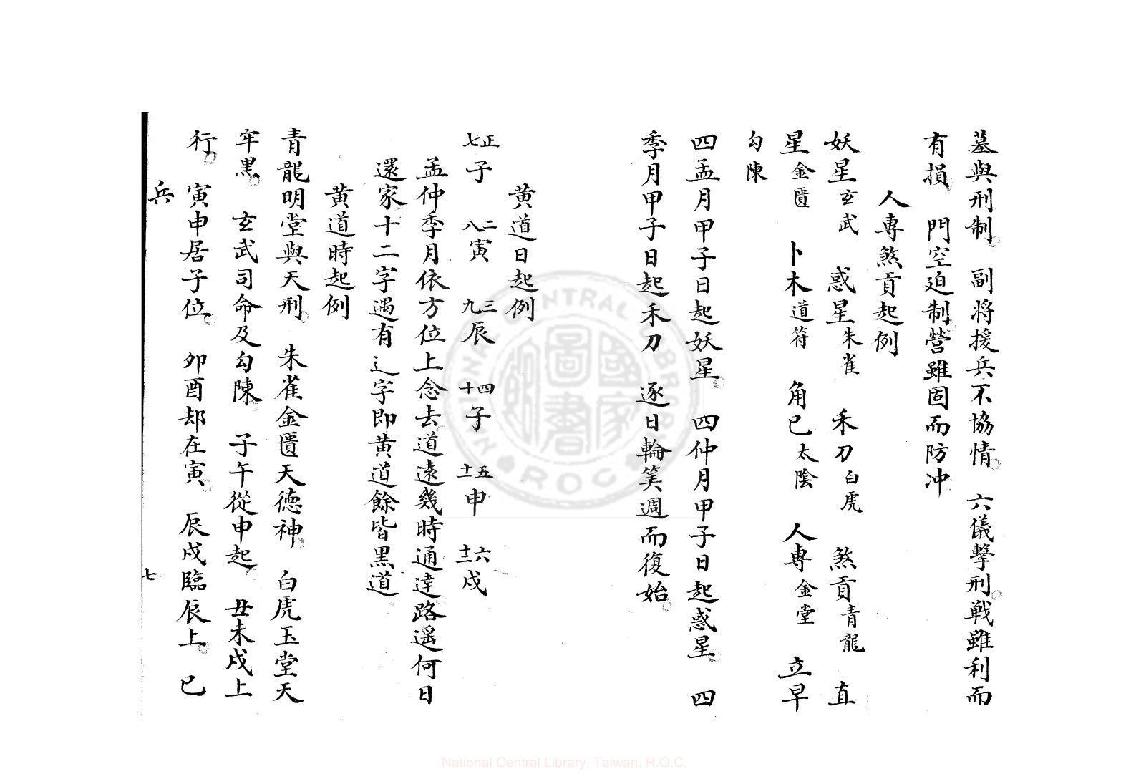 墓與刑制　副將援兵不協情　六儀擊刑戰雖利而
有損　門空迫制營雖固而防冲
人專煞貢起例
妖星玄武　惑星朱雀　禾刀白虎　煞貢青龍　直
星金匱　卜木道符　角巳太陰　人專金堂　立早
勾陳
四孟月甲子日起妖星　四仲月甲子日起惑星　四
季月甲子日起禾刀　逐日輪筭週而復始
黃道日起例
正七子　二八寅　三九辰　四十子　五十一申　六十二戍
孟仲季月依方位上念去道遠幾時通達路遥何日
還家十二字遇有辶字即黃道餘皆黑道
黃道時起例
青龍明堂與天刑　朱雀金匱天德神　白虎玉堂天
牢黑　玄武司命及勾陳　子午從申起　丑未戍上
行　寅申居子位　卯酉却在寅　辰戍臨辰上　巳
兵
七
National Central Library, Taiwan, R.O.C.
NATIONAL CENTRAL LIBRARY
ROC
國家圖書館